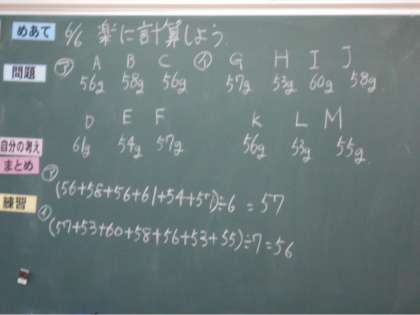 めあて 6/6 楽に計算しよう。
問題 ㋐ A B C ㋑ G H I J
56g 58g 56g 57g 53g 60g 58g
D E F K L M
61g 54g 57g 56g 53g 55g
自分の考え
まとめ
㋐ (56+58+56+61+54+57)÷6=57
練習
㋑ (57+53+60+58+56+53+55)÷7=56